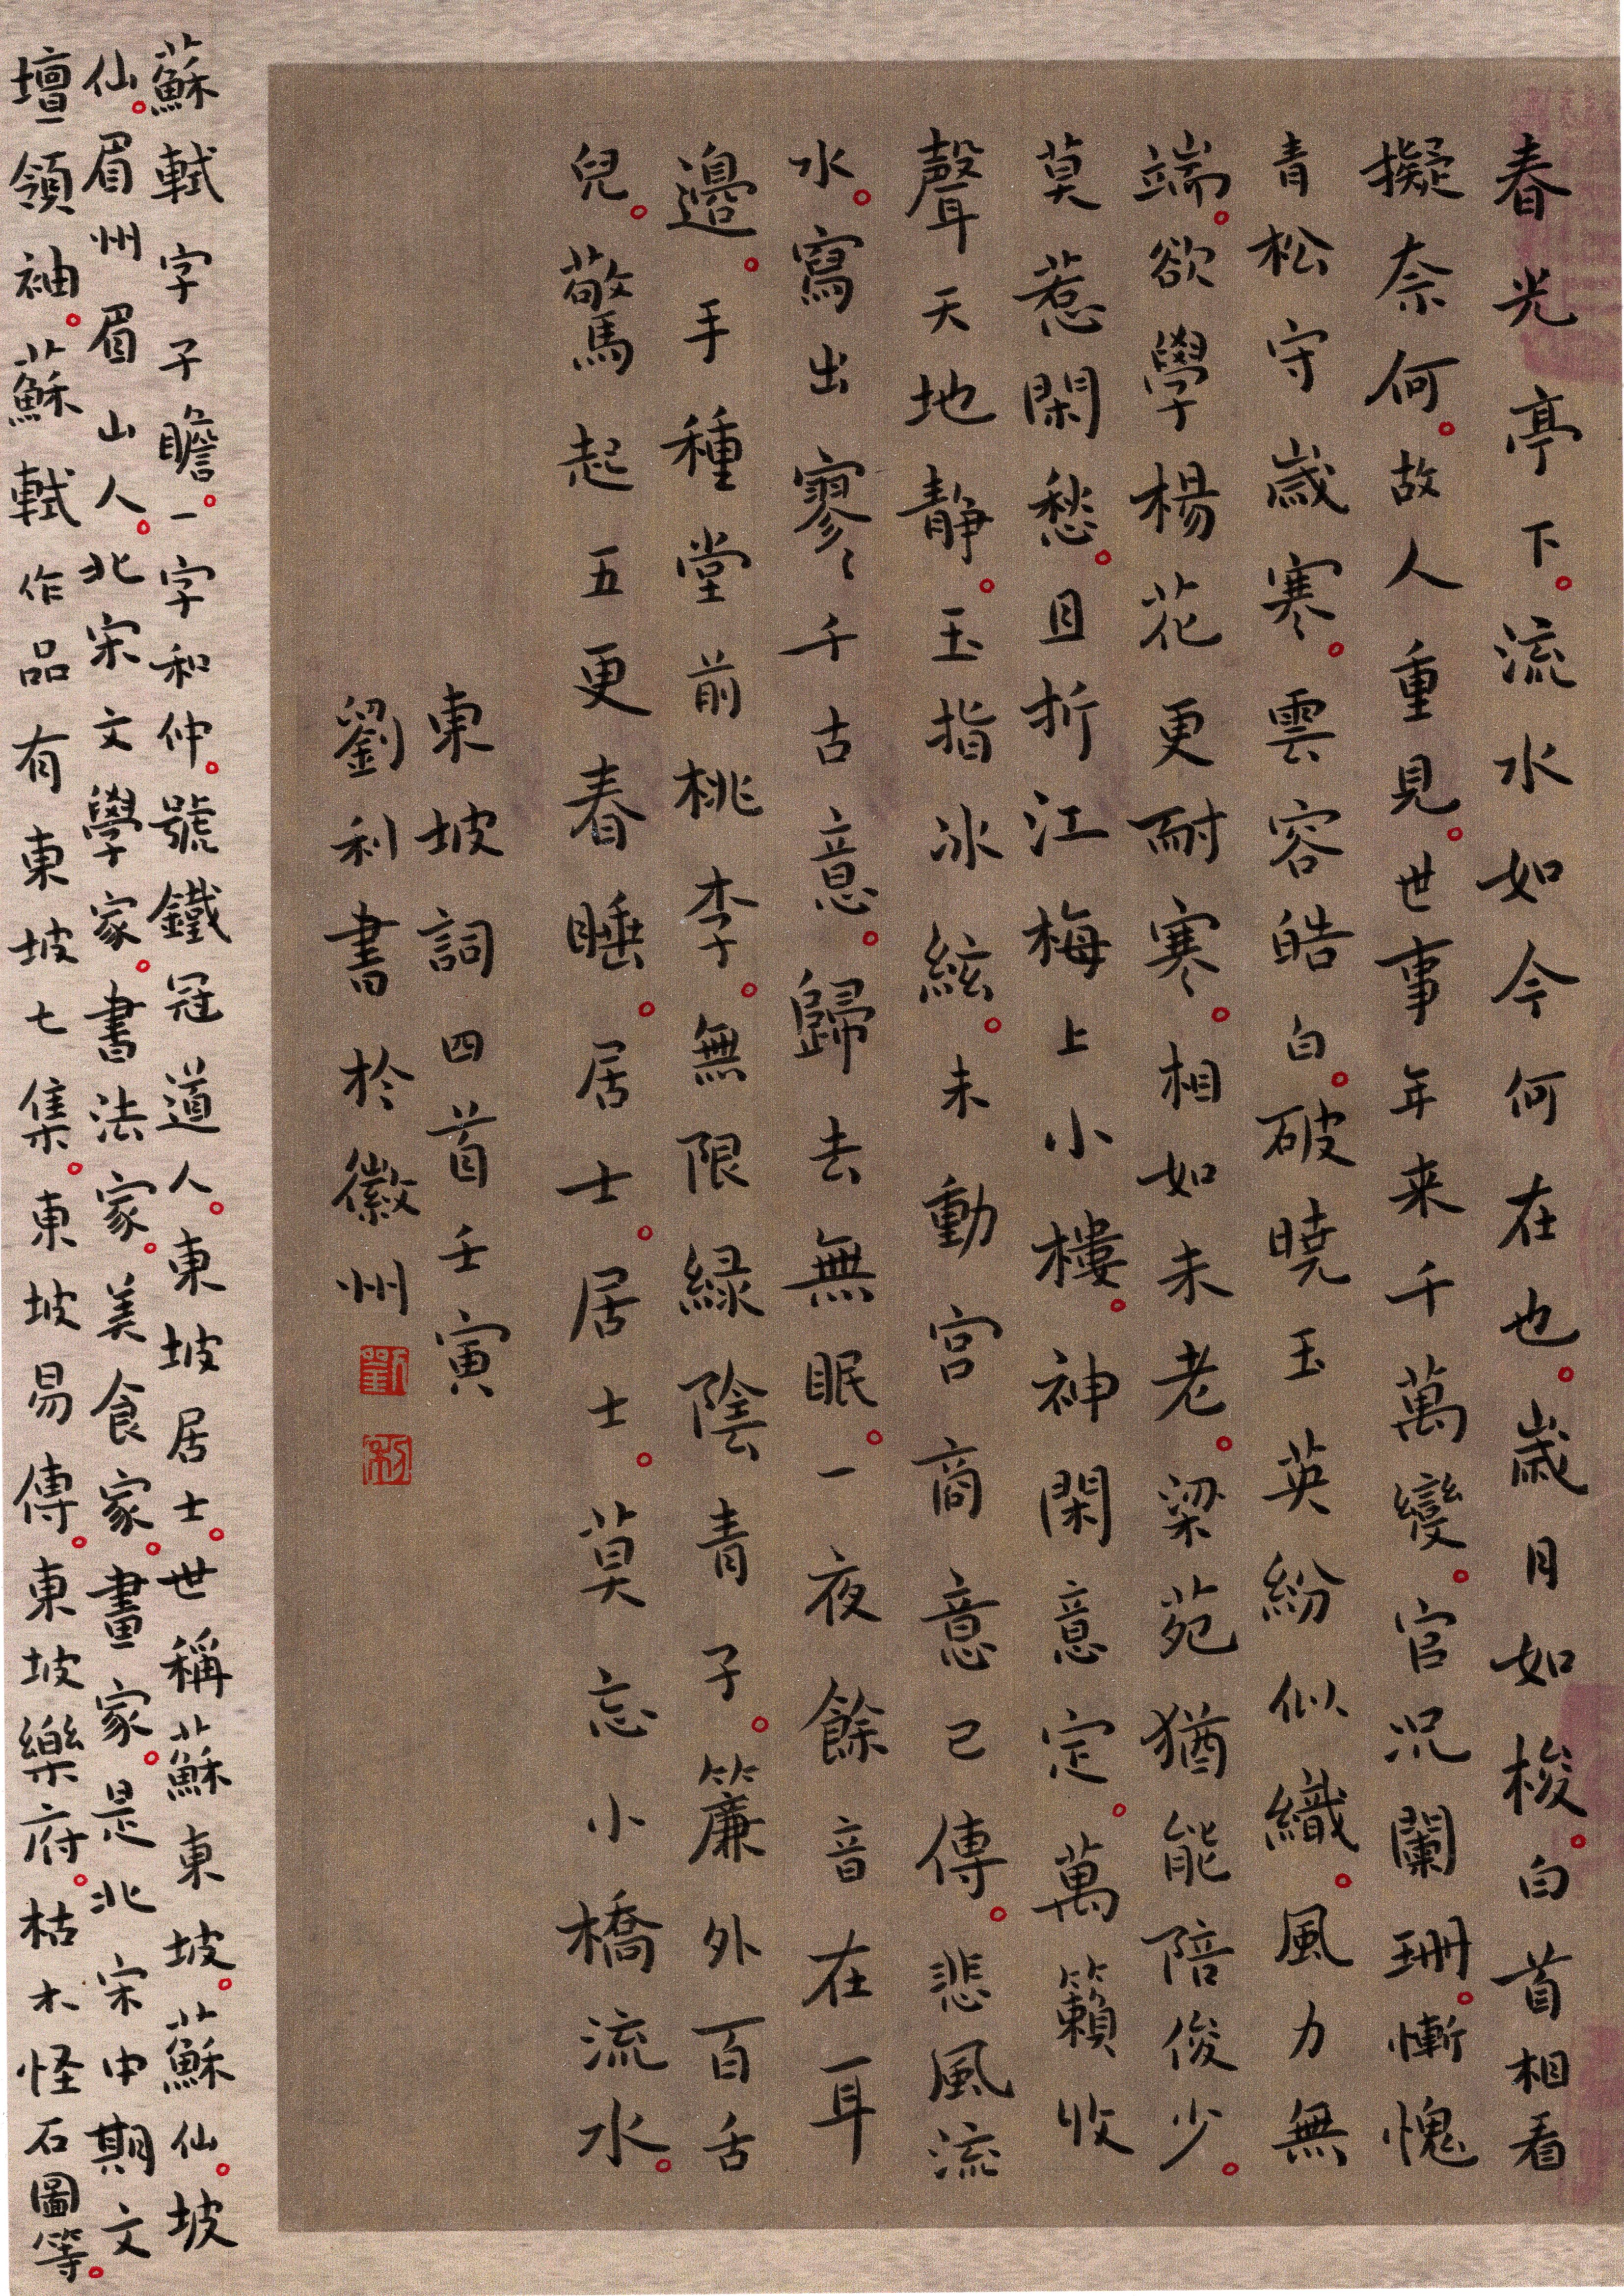 春光亭下。流水如今何在也。歲月如梭。白首相看
擬奈何。故人重見。世事年来千萬變。官况闌珊。慚愧
青松守歲寒。雲容皓白。破曉玉英紛似織。風力無
端。欲學楊花更耐寒。相如未老。梁苑猶能陪俊少。
莫惹閑愁。且折江梅上小樓。神閑意定。萬籟收
聲天地静。玉指冰絃。未動宮商意已傳。悲風流
水。寫出寥〻千古意。歸去無眠。一夜餘音在耳
邊。手種堂前桃李。無限緑陰青子。簾外百舌
兒。驚起五更春睡。居士。居士。莫忘小橋流水。
東坡詞四首壬寅
劉利書於徽州
劉
利
蘇軾字子瞻。一字和仲。號鐵冠道人。東坡居士。世稱蘇東坡。蘇仙。坡
仙。眉州眉山人。北宋文學家。書法家。美食家。畫家。是北宋中期文
壇領袖。蘇軾作品有東坡七集。東坡易傳。東坡樂府。枯木怪石圖等。